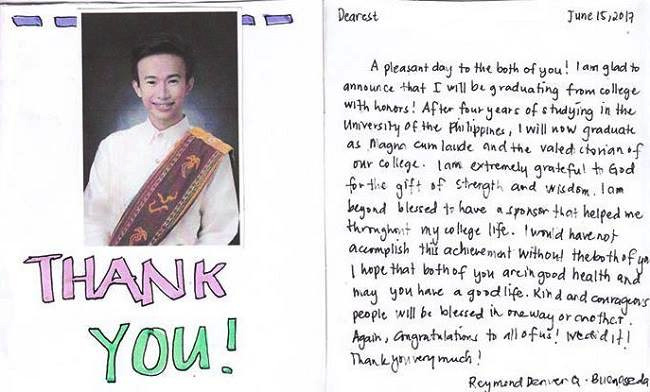 THANK
YOU!
Dearest June 15, 2017
A pleasant day to the both of you! I am glad to
announce that I will be graduating from college
with honors! After four years of studying in the
University of the Philippines, I will now graduate
as Magna cum laude and the valedictorian of
our college. I am extremely grateful to God
for the gift of strength and wisdom. I am
beyond blessed to have a sponsor that helped me
throughout my college life. I would have not
accomplish this achievement without the both of you
I hope that both of you are in good health and
may you have a good life. Kind and courageous
people will be blessed in one way or another.
Again, Congratulations to all of us! We did it!
Thank you very much!
Reymond Denver Q. Buenaseda